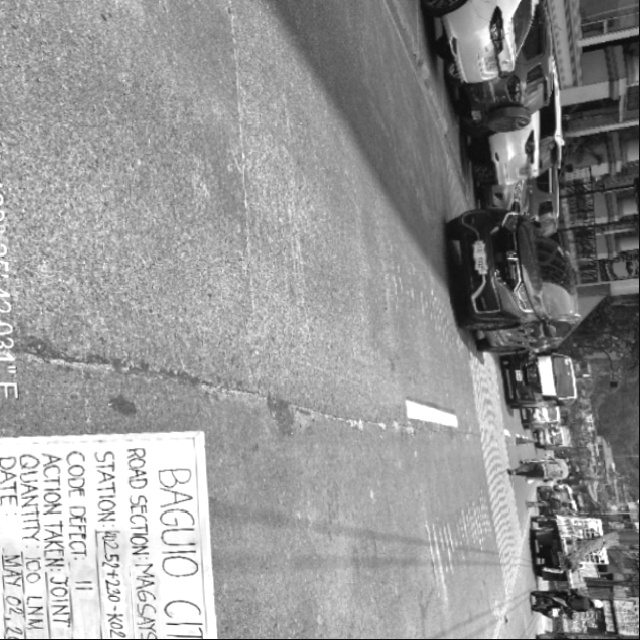 BAGUIO CIT
ROAD SECTION: MAGSAYS
STATION: K0259+230-K02
CODE DEFECT: 11
ACTION TAKEN: JOINT
QUANTITY: 100 LNM
DATE: MAY 02, 2